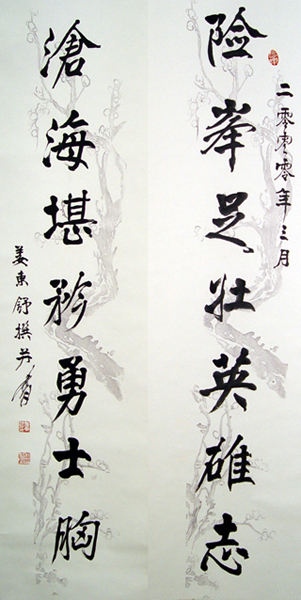 险峯足壮英雄志
二零零零年三月
滄海堪矜勇士胸
姜东舒撰并书